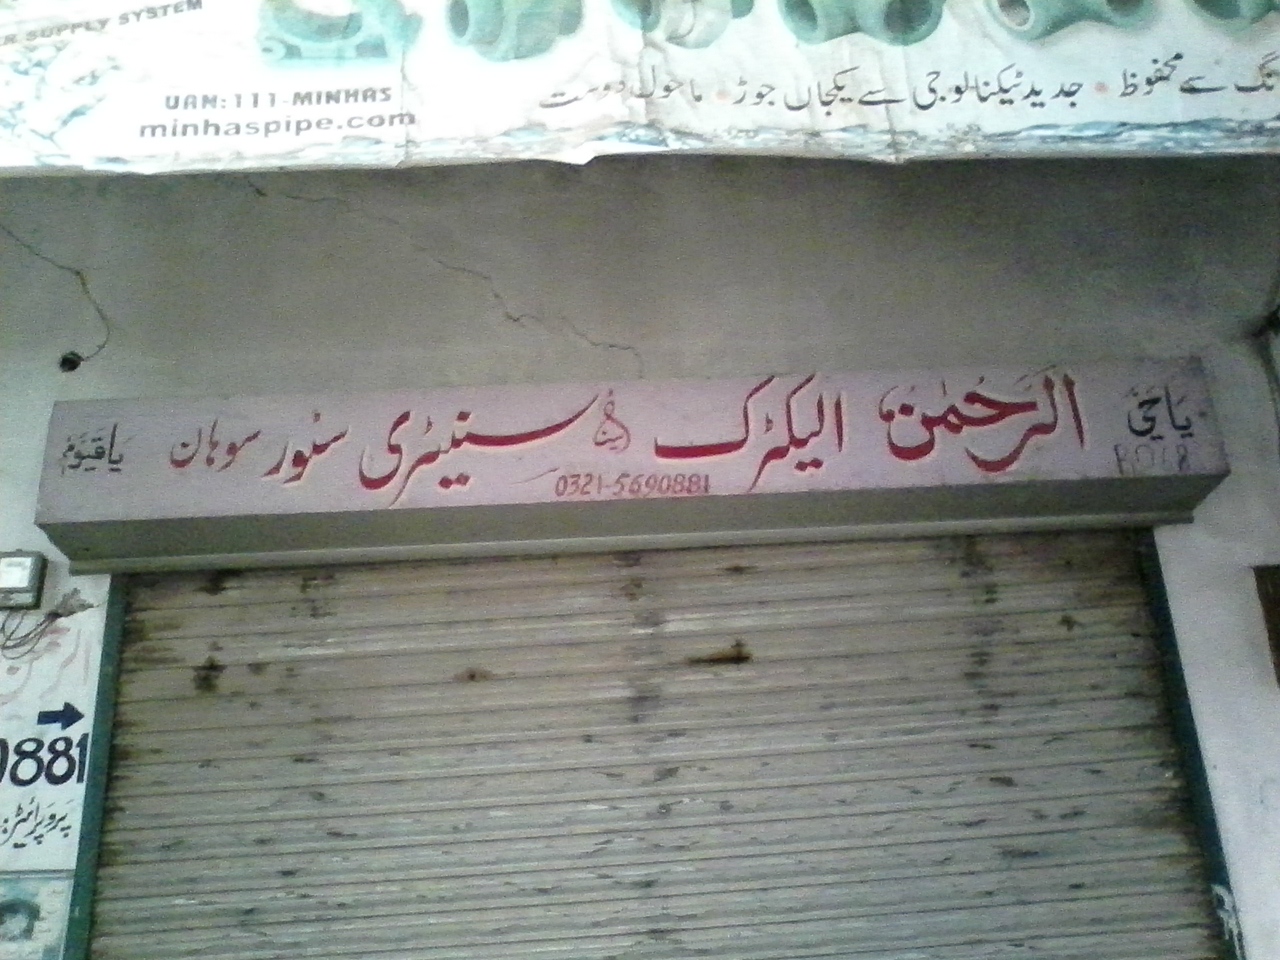 R SUPPLY SYSTEM
UAN:111-MINHAS
minhaspipe.com
نگ سے محفوظ • جدید ٹیکنالوجی سے یکجاں جوڑ • ماحول دوست
یَا حَیُّ الرَّحْمٰن الیکٹرک اینڈ سینیٹری سٹور سوہان یَا قَیُّوْمُ
0321-5690881
الرحمن
0881
پروپرائیٹر: